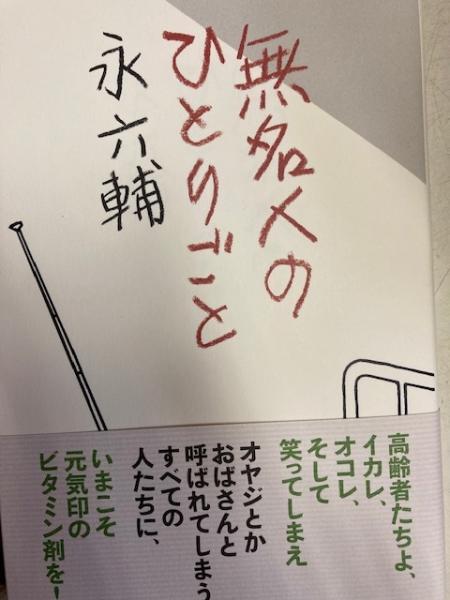 無名人の
ひとりごと
永六輔
高齢者たちよ、
イカレ、
オコレ、
そして
笑ってしまえ
オヤジとか
おばさんと
呼ばれてしまう
すべての
人たちに、
いまこそ
元気印の
ビタミン剤を!